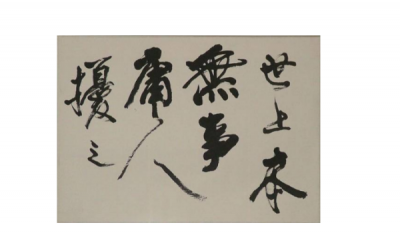 世上本
無事
庸人
擾之